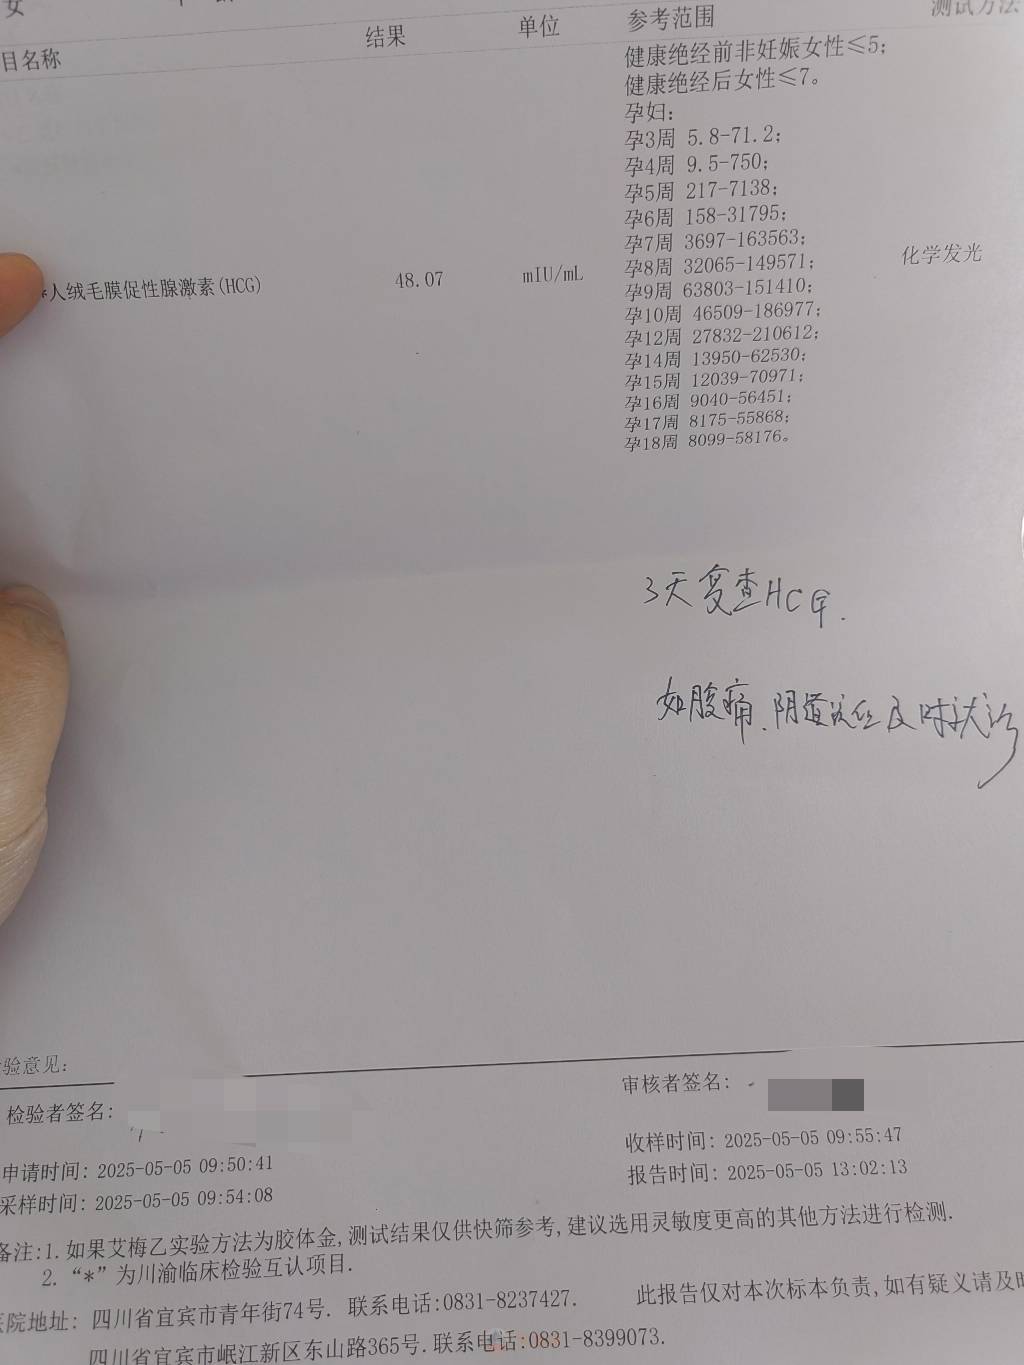 女
目名称 结果 单位 参考范围 测试方法
健康绝经前非妊娠女性≤5;
健康绝经后女性≤7。
孕妇:
孕3周 5.8-71.2;
孕4周 9.5-750;
孕5周 217-7138;
孕6周 158-31795;
孕7周 3697-163563;
*人绒毛膜促性腺激素(HCG) 48.07 mIU/mL 孕8周 32065-149571; 化学发光
孕9周 63803-151410;
孕10周 46509-186977;
孕12周 27832-210612;
孕14周 13950-62530;
孕15周 12039-70971;
孕16周 9040-56451;
孕17周 8175-55868;
孕18周 8099-58176。
3天复查HCG.
如腹痛、阴道流血及时就诊
验意见:
检验者签名: 审核者签名:
申请时间: 2025-05-05 09:50:41 收样时间: 2025-05-05 09:55:47
采样时间: 2025-05-05 09:54:08 报告时间: 2025-05-05 13:02:13
备注:1.如果艾梅乙实验方法为胶体金,测试结果仅供快筛参考,建议选用灵敏度更高的其他方法进行检测.
2.“*”为川渝临床检验互认项目.
医院地址: 四川省宜宾市青年街74号. 联系电话:0831-8237427. 此报告仅对本次标本负责,如有疑义请及时
四川省宜宾市岷江新区东山路365号.联系电话:0831-8399073.